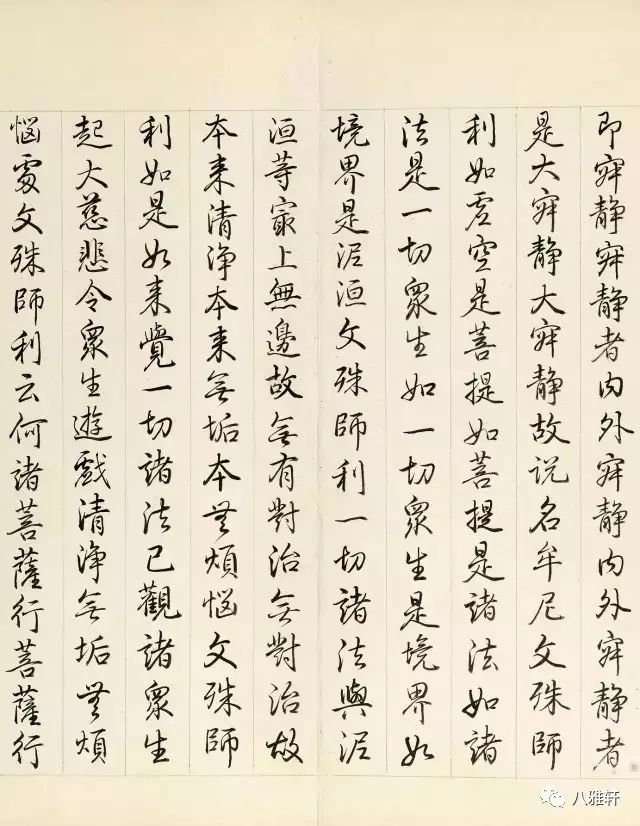 即寂静寂静者内外寂静内外寂静者
是大寂静大寂静故说名牟尼文殊師
利如虚空是菩提如菩提是諸法如諸
法是一切衆生如一切衆生是境界如
境界是泥洹文殊師利一切諸法與泥
洹等最上無邊故無有對治無對治故
本来清淨本来無垢本無煩惱文殊師
利如是如来覺一切諸法已觀諸衆生
起大慈悲令衆生遊戲清淨無垢無煩
惱處文殊師利云何諸菩薩行菩薩行
八雅轩